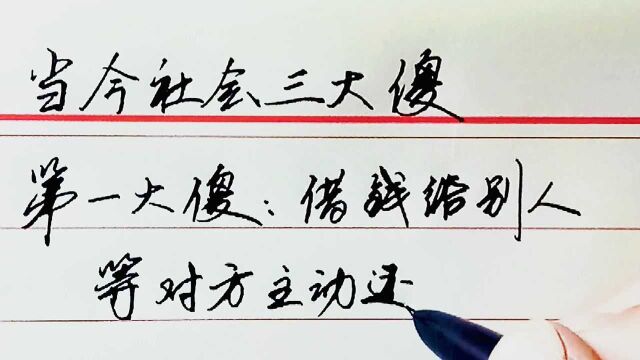 当今社会三大傻
第一大傻：借钱给别人
等对方主动还